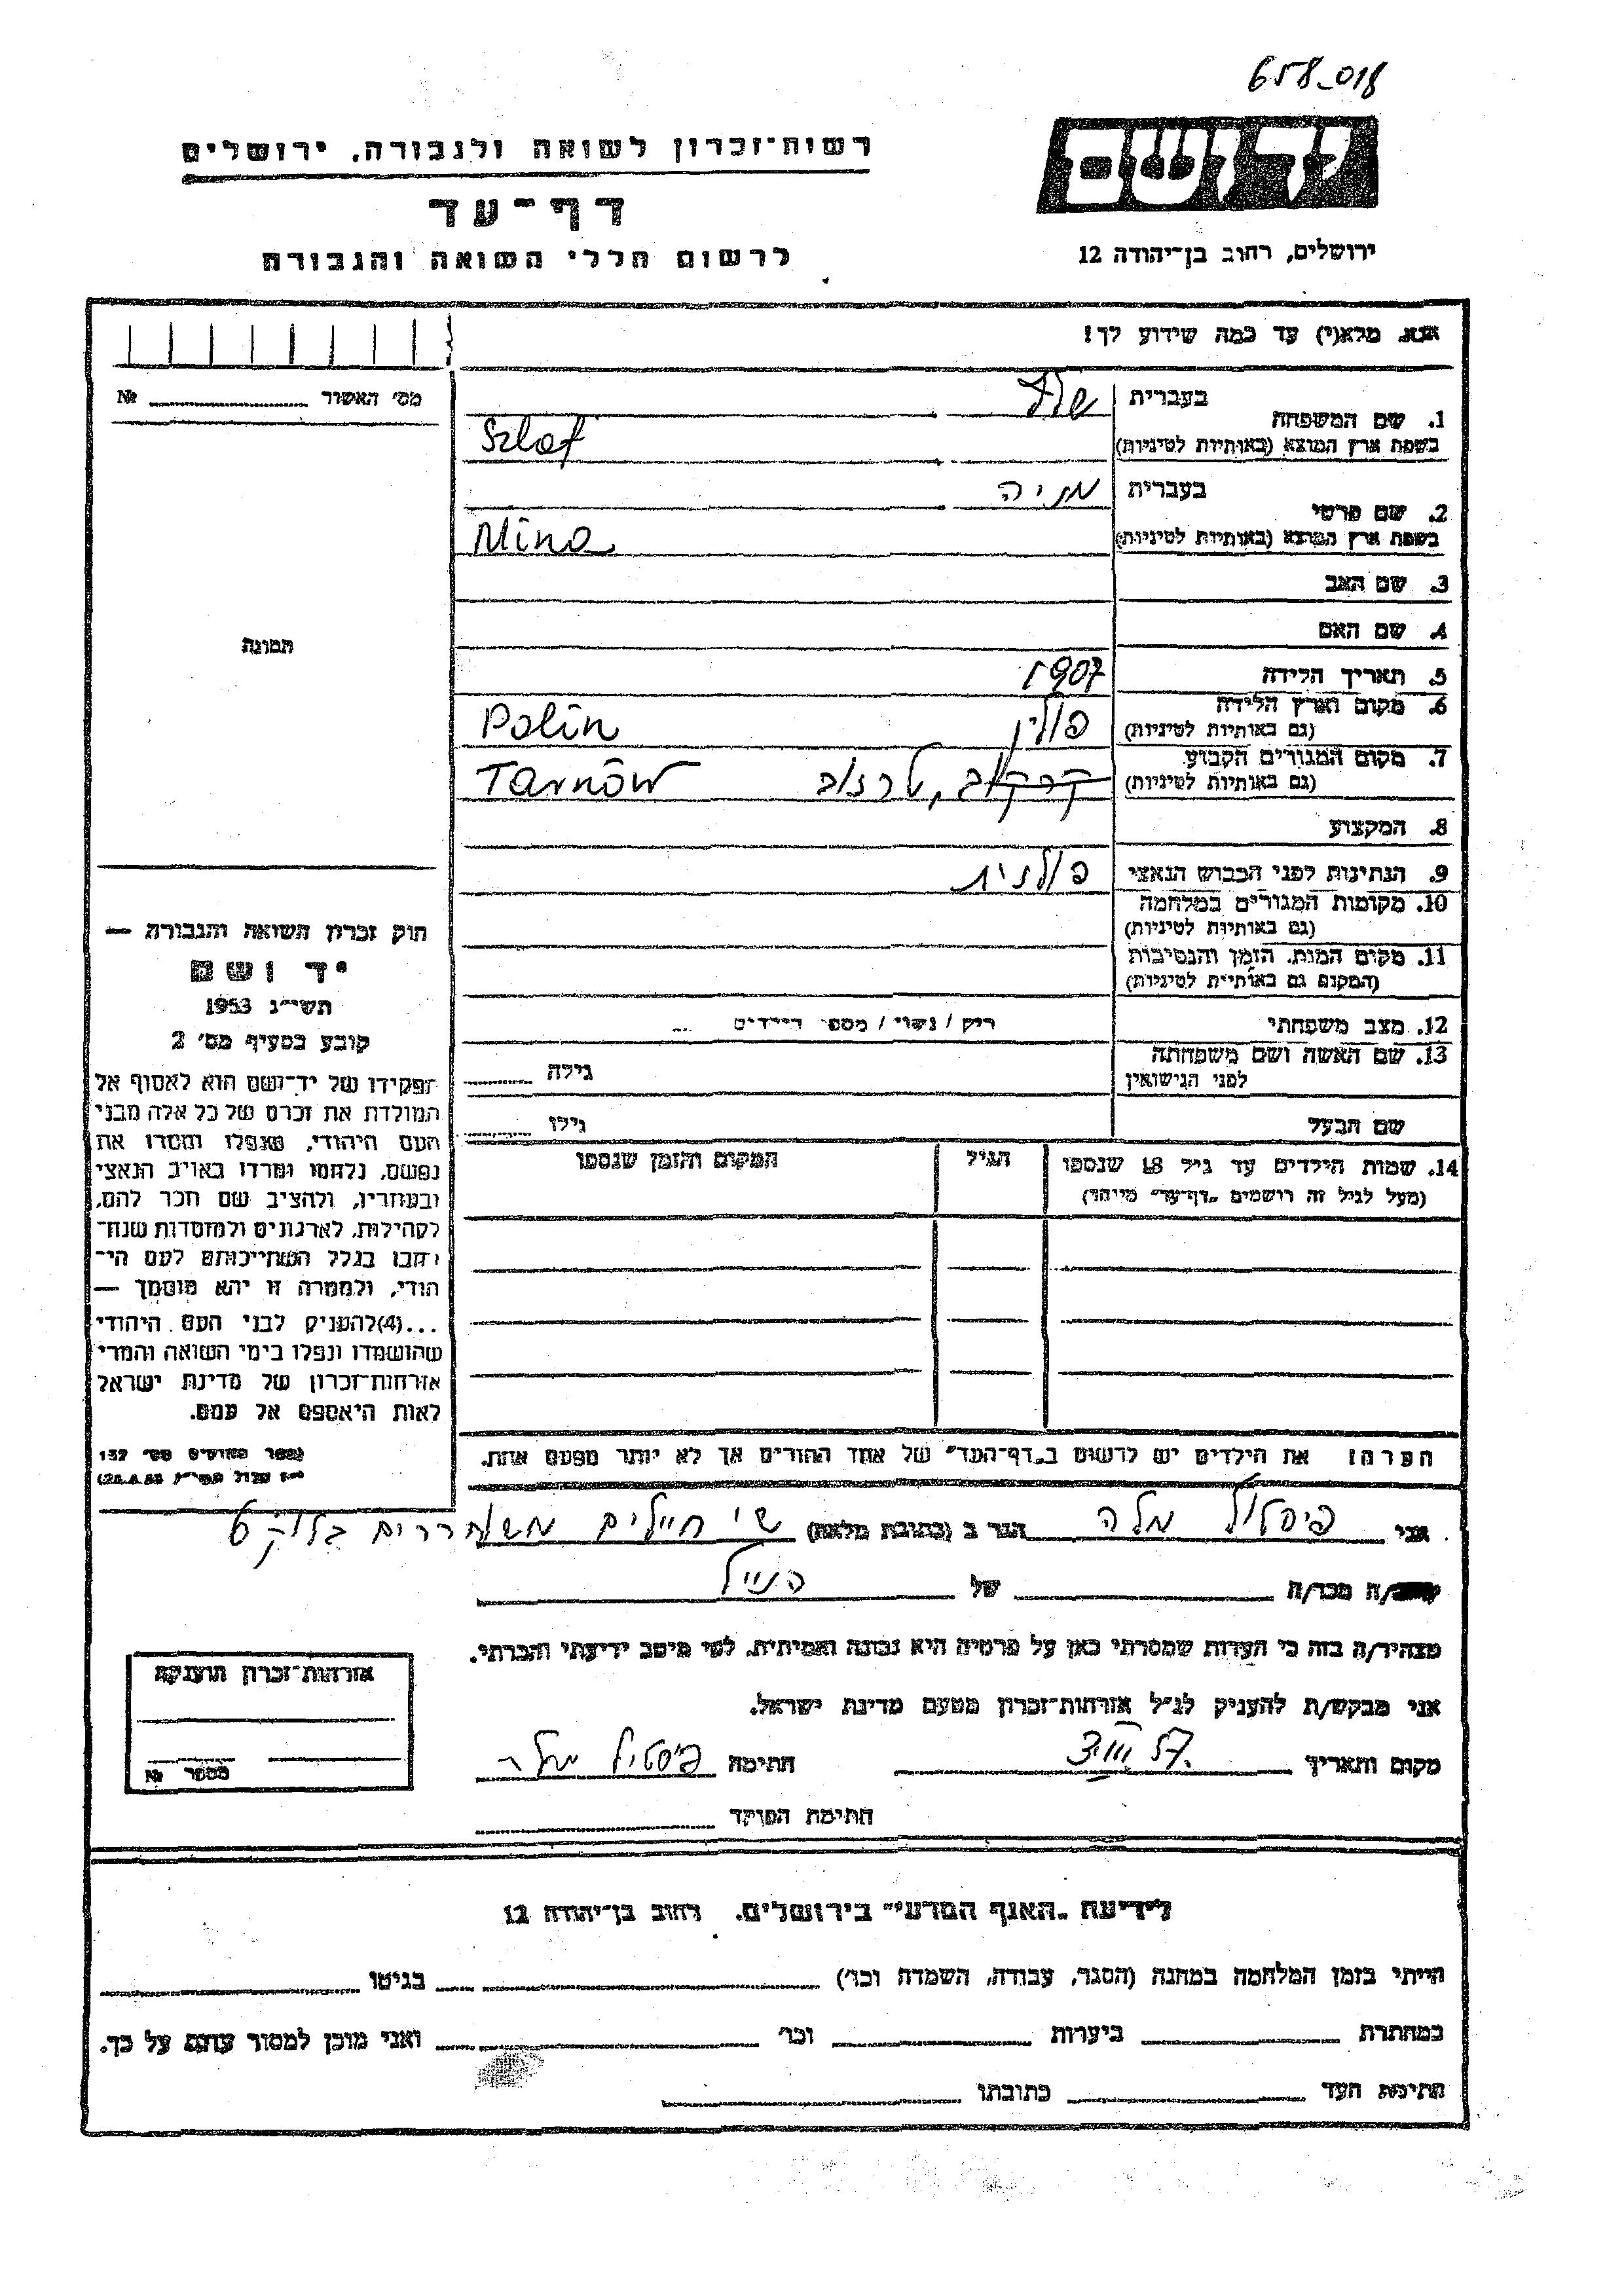 658-018
יד ושם
רשות־זכרון לשואה ולגבורה, ירושלים
דף־עד
לרשום חללי השואה והגבורה
ירושלים, רחוב בן־יהודה 12
אנא, מלא(י) עד כמה שידוע לך!
מס׳ האשור № 
1. שם המשפחה בעברית
בשפת ארץ המוצא (באותיות לטיניות) Szlaf
2. שם פרטי בעברית מניה
בשפת ארץ המוצא (באותיות לטיניות) Mina
3. שם האב
4. שם האם
תמונה
5. תאריך הלידה 1907
6. מקום וארץ הלידה פולין Polin
(גם באותיות לטיניות)
7. מקום המגורים הקבוע קרקוב, טרנוב Tarnów
(גם באותיות לטיניות)
8. המקצוע
9. הנתינות לפני הכבוש הנאצי פולנית
10. מקומות המגורים במלחמה
(גם באותיות לטיניות)
11. מקום המות, הזמן והנסיבות
(המקום גם באותיות לטיניות)
12. מצב משפחתי רוק / נשוי / מספר הילדים
13. שם האשה ושם משפחתה גילה
לפני הנישואין
שם הבעל גילו
14. שמות הילדים עד גיל 18 שנספו הגיל המקום והזמן שנספו
(מעל לגיל זה רושמים „דף־עד״ מיוחד)
חוק זכרון השואה והגבורה —
יד ושם
תשי״ג 1953
קובע בסעיף מס׳ 2
תפקידו של יד־ושם הוא לאסוף אל
המולדת את זכרם של כל אלה מבני
העם היהודי, שנפלו ומסרו את
נפשם, נלחמו ומרדו באויב הנאצי
ובעוזריו, ולהציב שם וזכר להם,
לקהילות, לארגונים ולמוסדות שנח־
רבו בגלל השתייכותם לעם הי־
הודי, ולמטרה זו יהא מוסמך —
...(4)להעניק לבני העם היהודי
שהושמדו ונפלו בימי השואה והמרי
אזרחות־זכרון של מדינת ישראל
לאות היאספם אל עמם.
הערה! את הילדים יש לרשום ב„דף־העד״ של אחד ההורים אך לא יותר מפעם אחת.
אני פיסטול מלה הגר ב (כתובת מלאה) שי חיילים משוחררים בלוק 6
קרוב/ה מכר/ה של הנ״ל
מצהיר/ה בזה כי העדות שמסרתי כאן על פרטיה היא נכונה ואמיתית, לפי מיטב ידיעתי והכרתי.
אני מבקש/ת להעניק לנ״ל אזרחות־זכרון מטעם מדינת ישראל.
מקום ותאריך חתימה פיסטול מלה
חתימת הפוקד
אזרחות־זכרון הוענקה
מספר №
לידיעת „האגף המדעי״ בירושלים, רחוב בן־יהודה 12
הייתי בזמן המלחמה במחנה (הסגר, עבודה, השמדה וכו׳) בגיטו
במחתרת ביערות וכו׳ ואני מוכן למסור עדות על כך.
חתימת העד כתובתו